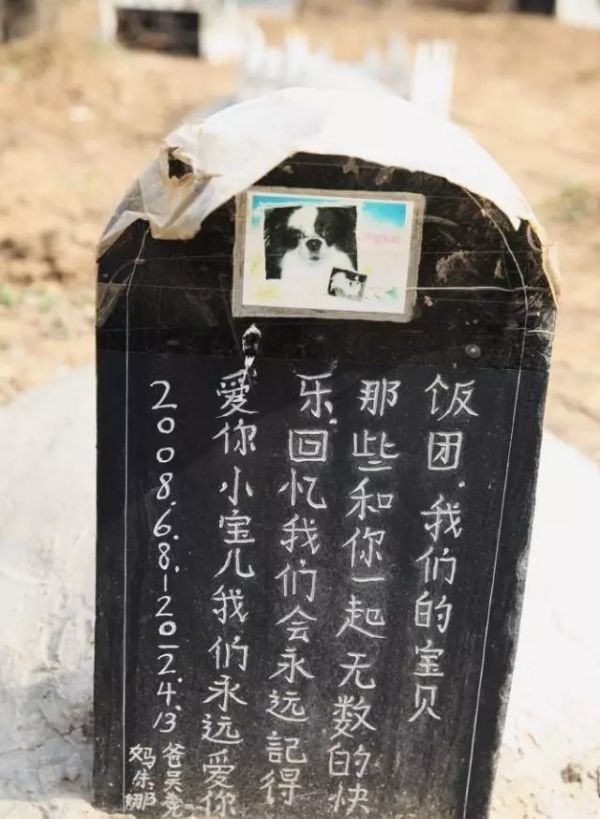 饭团.我们的宝贝
那些和你一起无数的快
乐.回忆我们会永远記得
爱你小宝儿我们永远爱你
2008.6.8.-2012.4.13
爸吴尧
妈朱娜